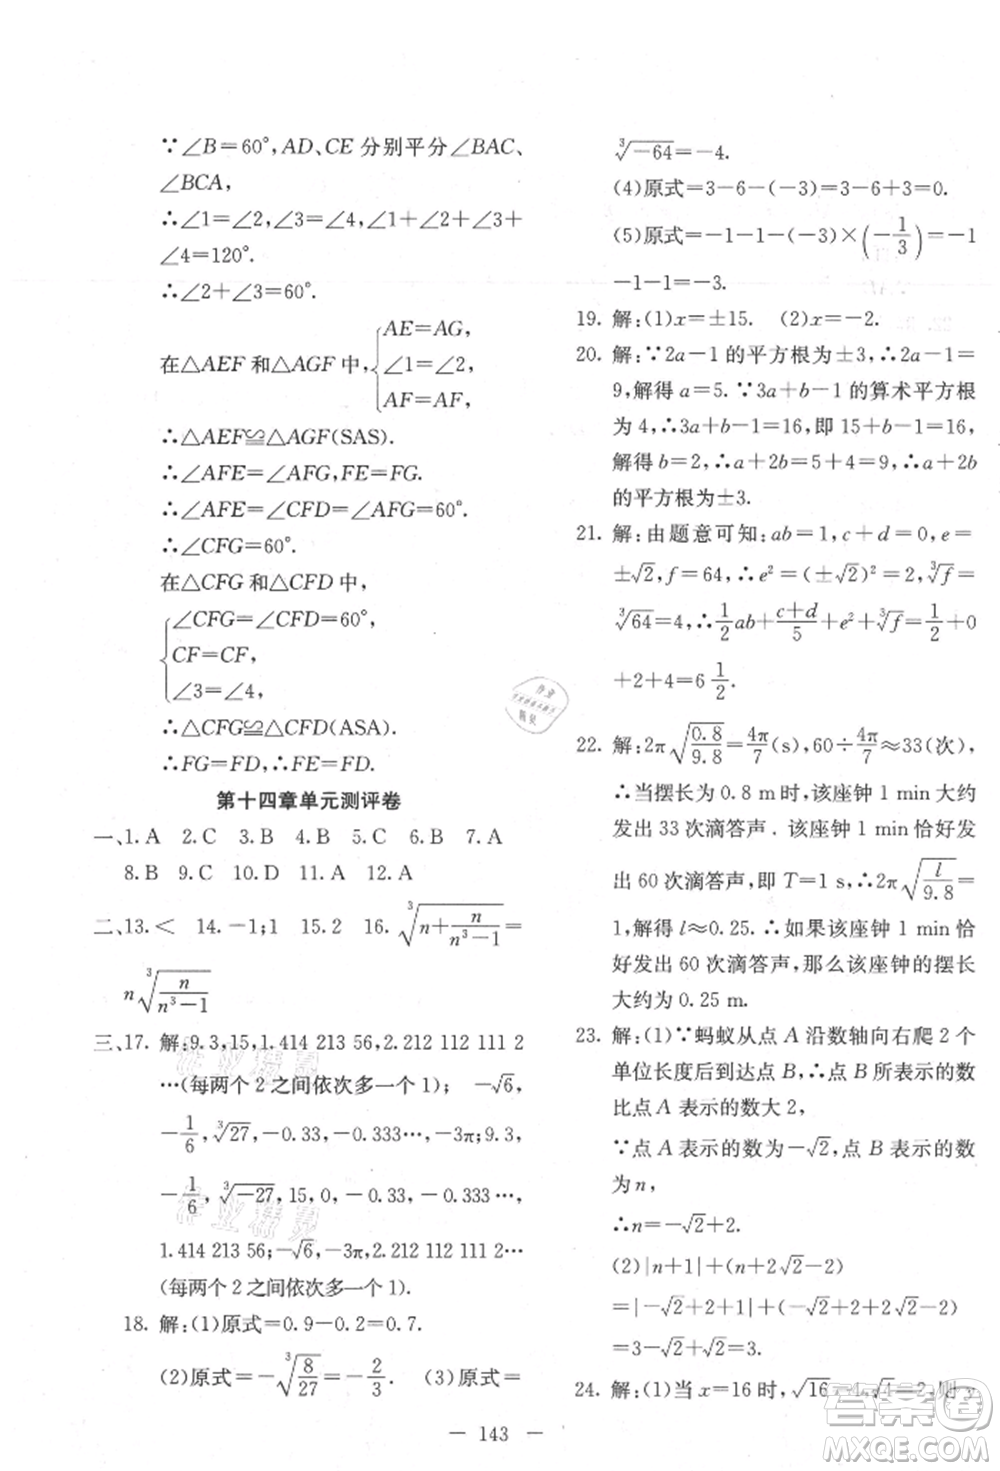 ∵∠B=60°,AD、CE 分别平分∠BAC、
∠BCA,
∴∠1=∠2,∠3=∠4,∠1+∠2+∠3+
∠4=120°.
∴∠2+∠3=60°.
在△AEF 和△AGF 中,{AE=AG,
∠1=∠2,
AF=AF,
∴△AEF≌△AGF(SAS).
∴∠AFE=∠AFG,FE=FG.
∴∠AFE=∠CFD=∠AFG=60°.
∴∠CFG=60°.
在△CFG 和△CFD 中,
{∠CFG=∠CFD,
CF=CF,
∠3=∠4,
∴△CFG≌△CFD(ASA).
∴FG=FD,∴FE=FD.
第十四章单元测评卷
一、1.A 2.C 3.B 4.B 5.C 6.B 7.A
8.B 9.C 10.D 11.A 12.A
二、13.< 14.-1;1 15.2 16.∛(n+n/(n³-1))=
n∛(n/(n³-1))
三、17. 解:9.3,15,1.414 213 56,2.412 112 111 2
…(每两个 2 之间依次多一个 1); -√6,
-1/6,∛27,-0.33,-0.333…,-π;9.3,
-1/6,∛-27,15,0,-0.33,-0.333…,
1.414 213 56;-√6,-3π,2.412 112 111 2…
(每两个 2 之间依次多一个 1).
18. 解:(1)原式=0.9-0.2=0.7.
(2)原式=-∛(8/27)=-2/3. (3)原式=
∛-64=-4.
(4)原式=3-6-(-3)=3-6+3=0.
(5)原式=-1-1-(-3)×(-1/3)=-1
-1-1=-3.
19. 解:(1)x=±15. (2)x=-2.
20. 解:∵2a-1 的平方根为±3,∴2a-1=
9,解得 a=5.∵3a+b-1 的算术平方根
为 4,∴3a+b-1=16,即 15+b-1=16,
解得 b=2,∴a+2b=5+4=9,∴a+2b
的平方根为±3.
21. 解:由题意可知:ab=1,c+d=0,e=
±√2,f=64,∴e²=(±√2)²=2,∛f=
∛64=4,∴1/2ab+(c+d)/5+e²+∛f=1/2+0
+2+4=6 1/2.
22. 解:2π√(0.8/9.8)=4π/7(s),60÷4π/7≈33(次),
∴当摆长为 0.8 m 时,该座钟 1 min 大约
发出 33 次滴答声. 该座钟 1 min 恰好发
出 60 次滴答声,即 T=1 s,∴2π√(l/9.8)=
1,解得 l≈0.25.∴如果该座钟 1 min 恰
好发出 60 次滴答声,那么该座钟的摆长
大约为 0.25 m.
23. 解:(1)∵蚂蚁从点 A 沿数轴向右爬 2 个
单位长度后到达点 B,∴点 B 表示的数
比点 A 表示的数大 2,
∵点 A 表示的数为-√2,点 B 表示的数
为 n,
∴n=-√2+2.
(2)|n+1|+(n+2√2-2)
=|-√2+2+1|+(-√2+2+2√2-2)
=3-√2+√2=3.
24. 解:(1)当 x=16 时,√16=4,√4=2,则 y
— 143 —
答案圈
MXQE.COM